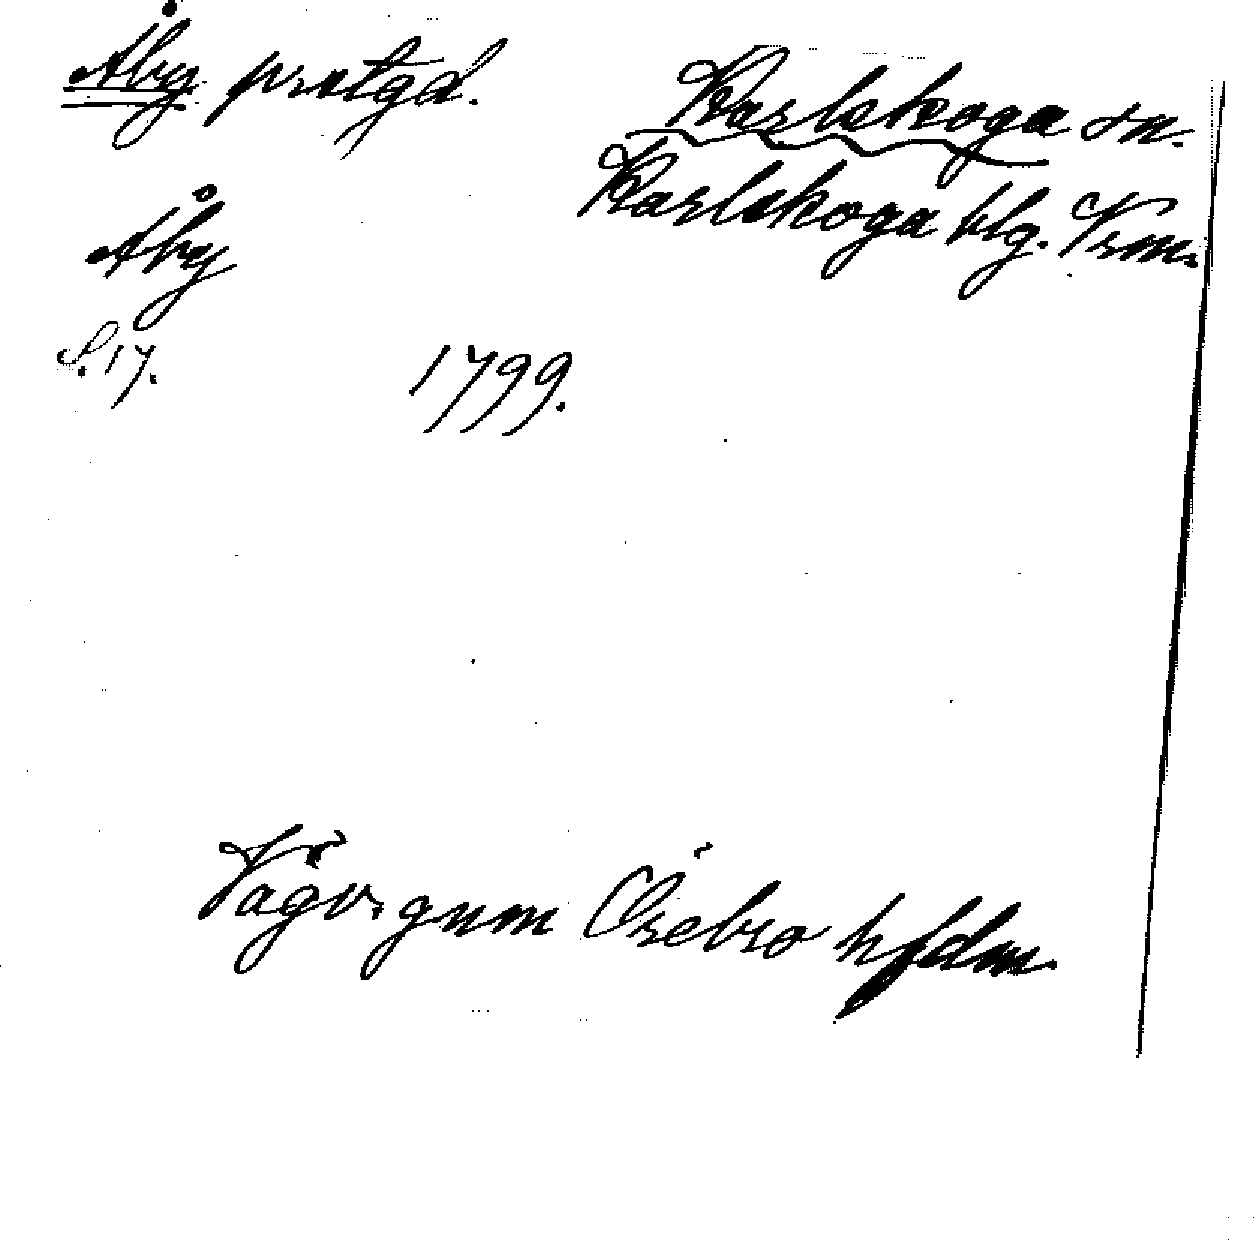 Åby prstgd.
Karlskoga sn.
Karlskoga blg. Vrm.
Åby
S. 17. 1799.
Vägvs gnm Örebro hfdm.